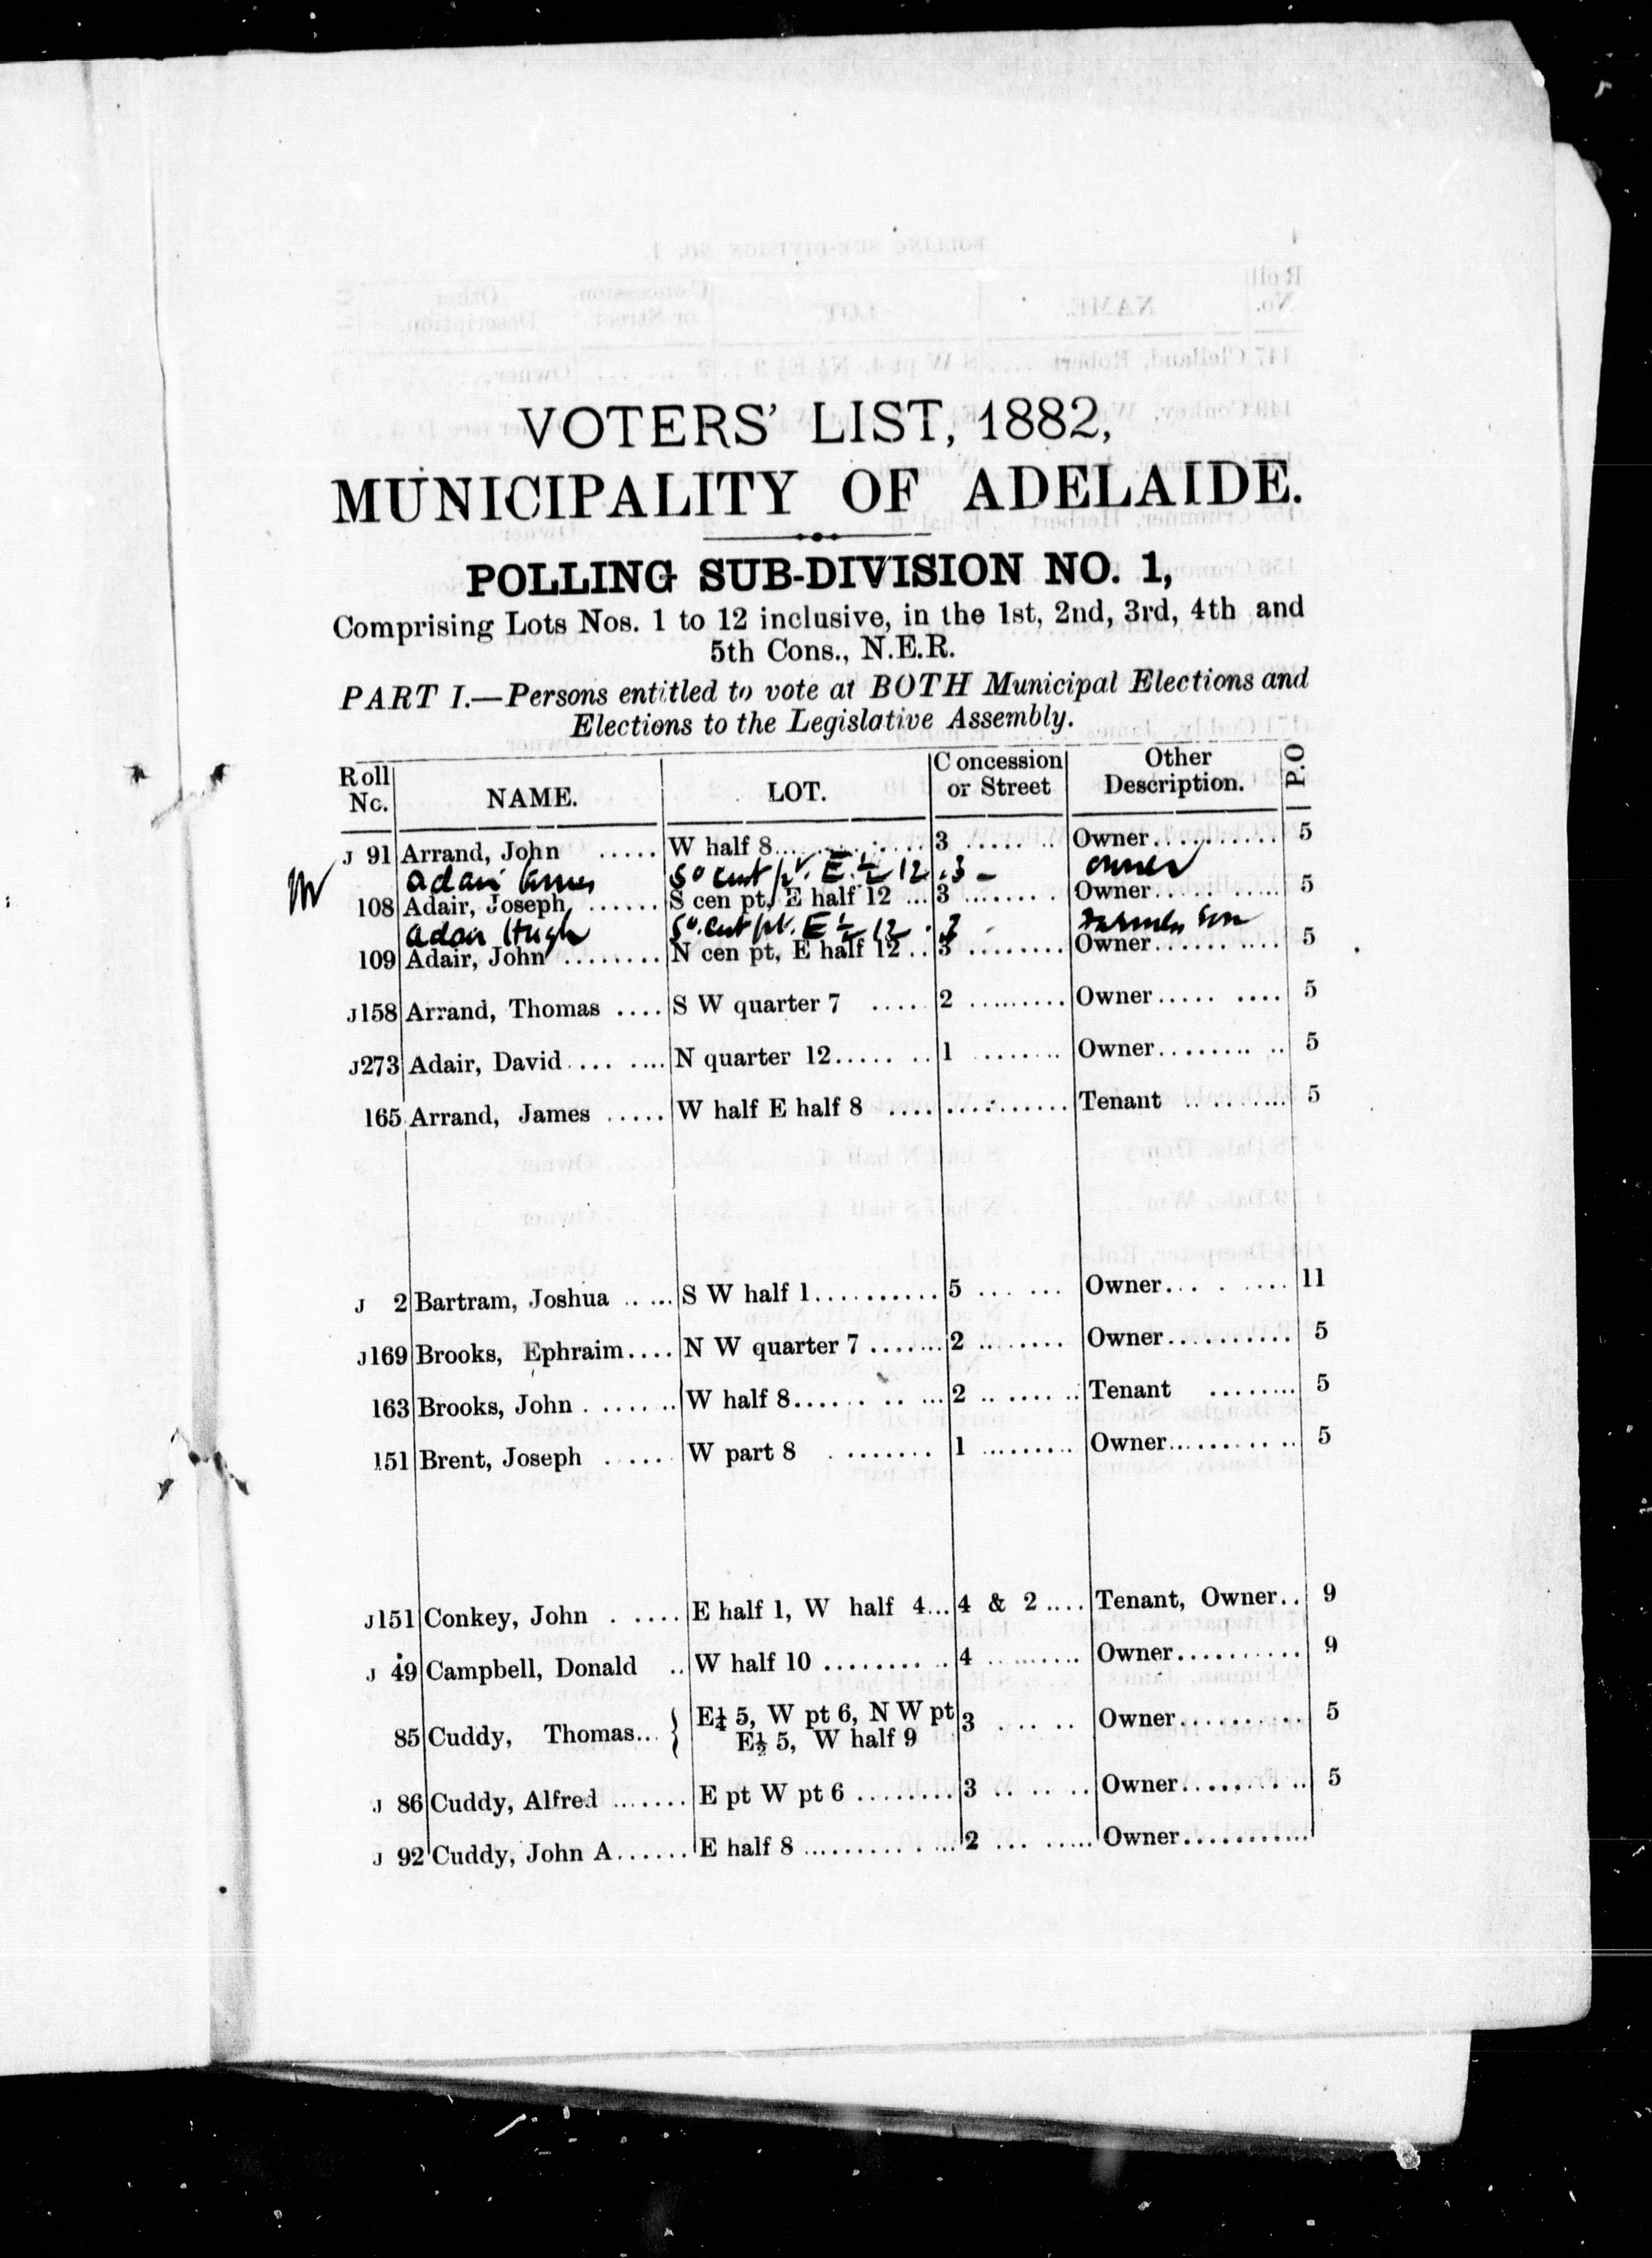 VOTERS' LIST, 1882,
MUNICIPALITY OF ADELAIDE.
POLLING SUB-DIVISION NO. 1,
Comprising Lots Nos. 1 to 12 inclusive, in the 1st, 2nd, 3rd, 4th and
5th Cons., N.E.R.
PART I.—Persons entitled to vote at BOTH Municipal Elections and
Elections to the Legislative Assembly.
Roll No. NAME. LOT. Concession or Street Other Description. P.O
J 91 Arrand, John ..... W half 8.............. 3 ....... Owner........... 5
Adair James So cent pt. E ½ 12 . 3 - owner
108 Adair, Joseph ...... S cen pt, E half 12 ... 3 ........ Owner........... 5
Adair Hugh So. cent pt. E ½ 12 . 3 Farmers Son
109 Adair, John ........ N cen pt, E half 12 .. 3 ........ Owner.......... 5
J158 Arrand, Thomas .... S W quarter 7 ..... 2 ......... Owner..... .... 5
J273 Adair, David.... .... N quarter 12..... .. 1 ........ Owner........ .. 5
165 Arrand, James ..... W half E half 8 .... ........... Tenant ......... 5
J 2 Bartram, Joshua .. ... S W half 1.......... 5 ... ... Owner... . ..... 11
J169 Brooks, Ephraim.... N W quarter 7 ....... 2 ........ Owner.......... 5
163 Brooks, John . ...... W half 8...... .. ... 2 .. ...... Tenant ........ 5
151 Brent, Joseph ...... W part 8 ........ 1 ......... Owner.......... .. 5
J151 Conkey, John . .... E half 1, W half 4... 4 & 2 .... Tenant, Owner.. 9
J 49 Campbell, Donald .. W half 10 ........ .. 4 ......... Owner.......... 9
85 Cuddy, Thomas... { E¼ 5, W pt 6, N W pt 3 . .... .. Owner.......... 5
E½ 5, W half 9
J 86 Cuddy, Alfred ....... E pt W pt 6 ........ 3 .. .. .. Owner........ .. 5
J 92 Cuddy, John A....... E half 8 .......... . ... 2 ... ..... Owner...........